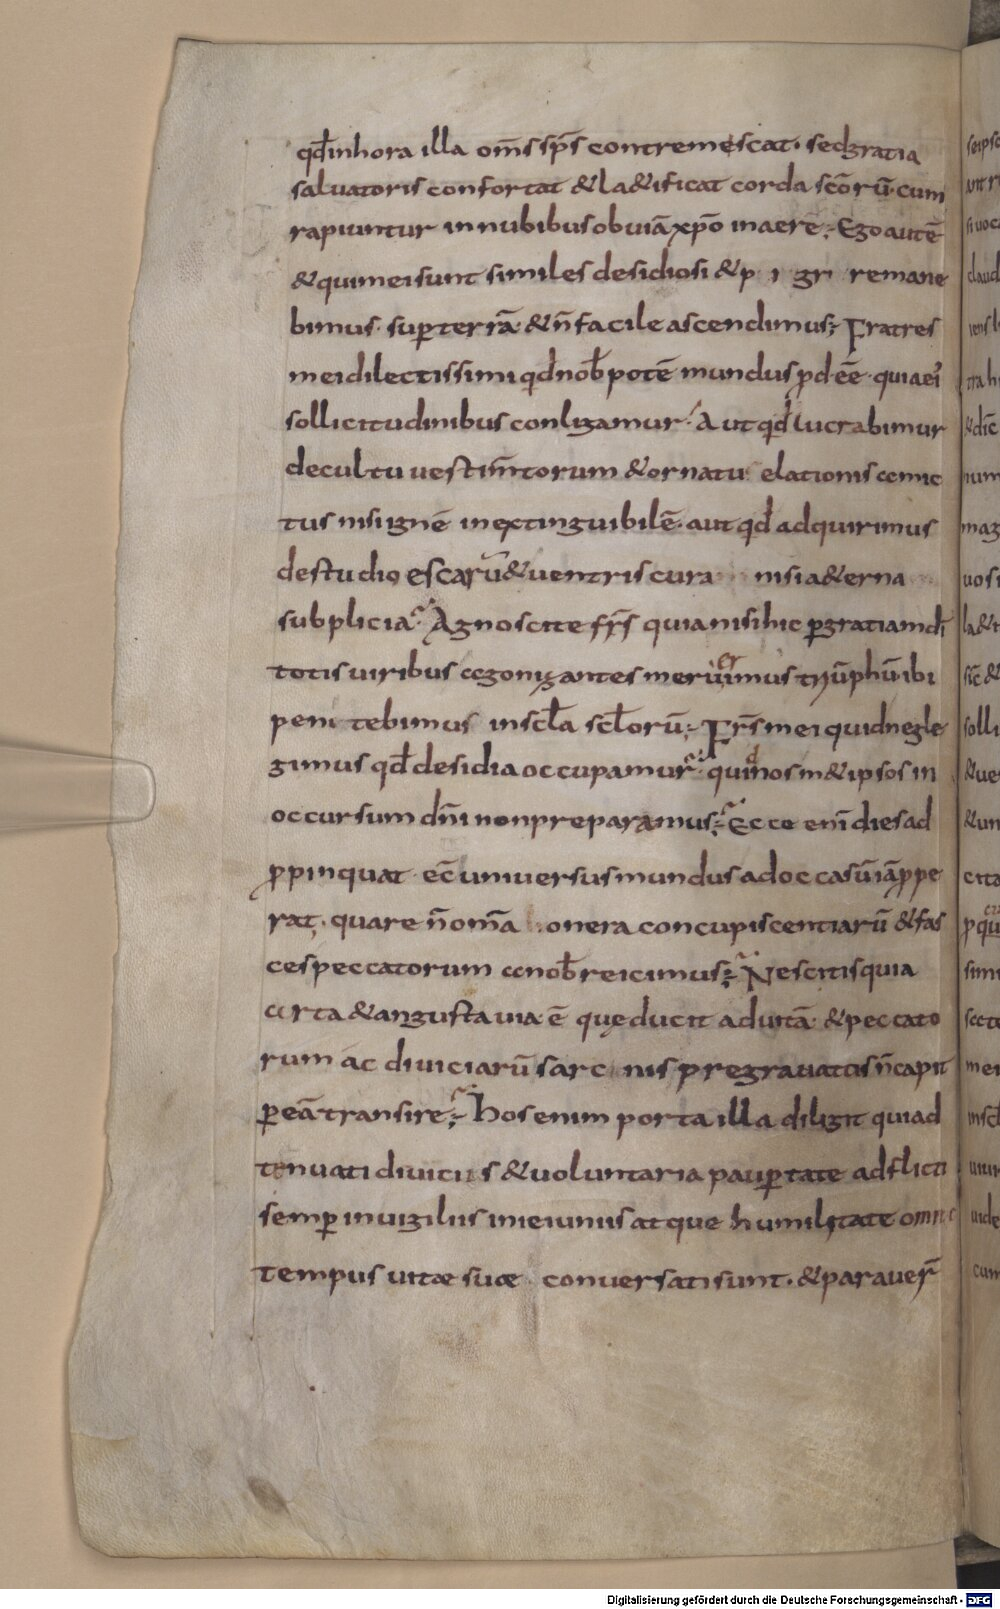 qđinhora illa om̄s sp̄s contremescat· sedgratia
saluatoris confortat &la&ificat corda sc̄orū·cum
rapiuntur innubibusobuiāxp̄o inaerē· Egoautē
&quimeisunt similes desidiosi &p i gr remane
bimus· suꝑterrā &n̄facileascendimus; Fratres
meidilectissimi qđnob̄potē mundusꝓdeē·quiaei'
sollicitudinibus conligamur· Autqđlucrabimur
decultu uestim̄torum &ornatu elationis
tus nisi ignē inextinguibilē· aut qđ adquirimus
destudio escarū&uentris cura nisi a&erna
subplicia· Agnoscite fr̄s quianisihic ꝑgratiamdī
totis uiribus cogonizantes meruerimus triūphū·ibi
peni tebimus inscl̄a scl̄orū· Fr̄smei quidnegle
gimus qđdesidiaoccupamur· quidnosm&ipsos in
occursum dn̄i nonpreparamus; Ecce enī diesad
ꝓpinquat· ec̄uniuersusmundus adoccasūiāꝓpe
rat· quare n̄om̄a onera concupiscentiarū &fas
cespeccatorum anob̄reicimus; Nescitisquia
arta&angusta uia ē quęducit aduitā· &peccato
rum ac diuiciarū sarc nis pregrauatis n̄capit
ꝑeātransire; hos enim porta illa diligit quiad
tenuati diuiciis &uoluntaria pauꝑtate adflicti
semꝑ inuigiliis inieiunus atque humilitate omne
tempus uitae suae conuersati sunt· &parauer̄
Digitalisierung gefördert durch die Deutsche Forschungsgemeinschaft - DFG